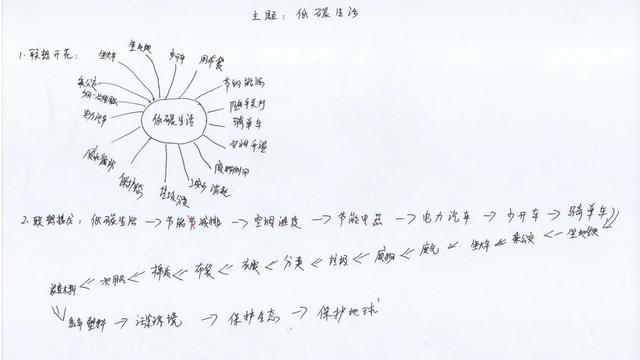 主题：低碳生活
1.联想开花：
坐火车
坐地铁
少开车
用布袋
节约能源
随手关灯
骑单车
空调升温
废物利用
减少消耗
垃圾分类
保护生态
乘公交
低碳生活
2.联想接龙：低碳生活→节能减排→空调温度→节能电器→电力汽车→少开车→骑单车
坐地铁 乘公交 坐火车 废气 废物 垃圾 分类 衣服 布袋 棉质 一次用品
塑料→污染环境→保护生态→保护地球